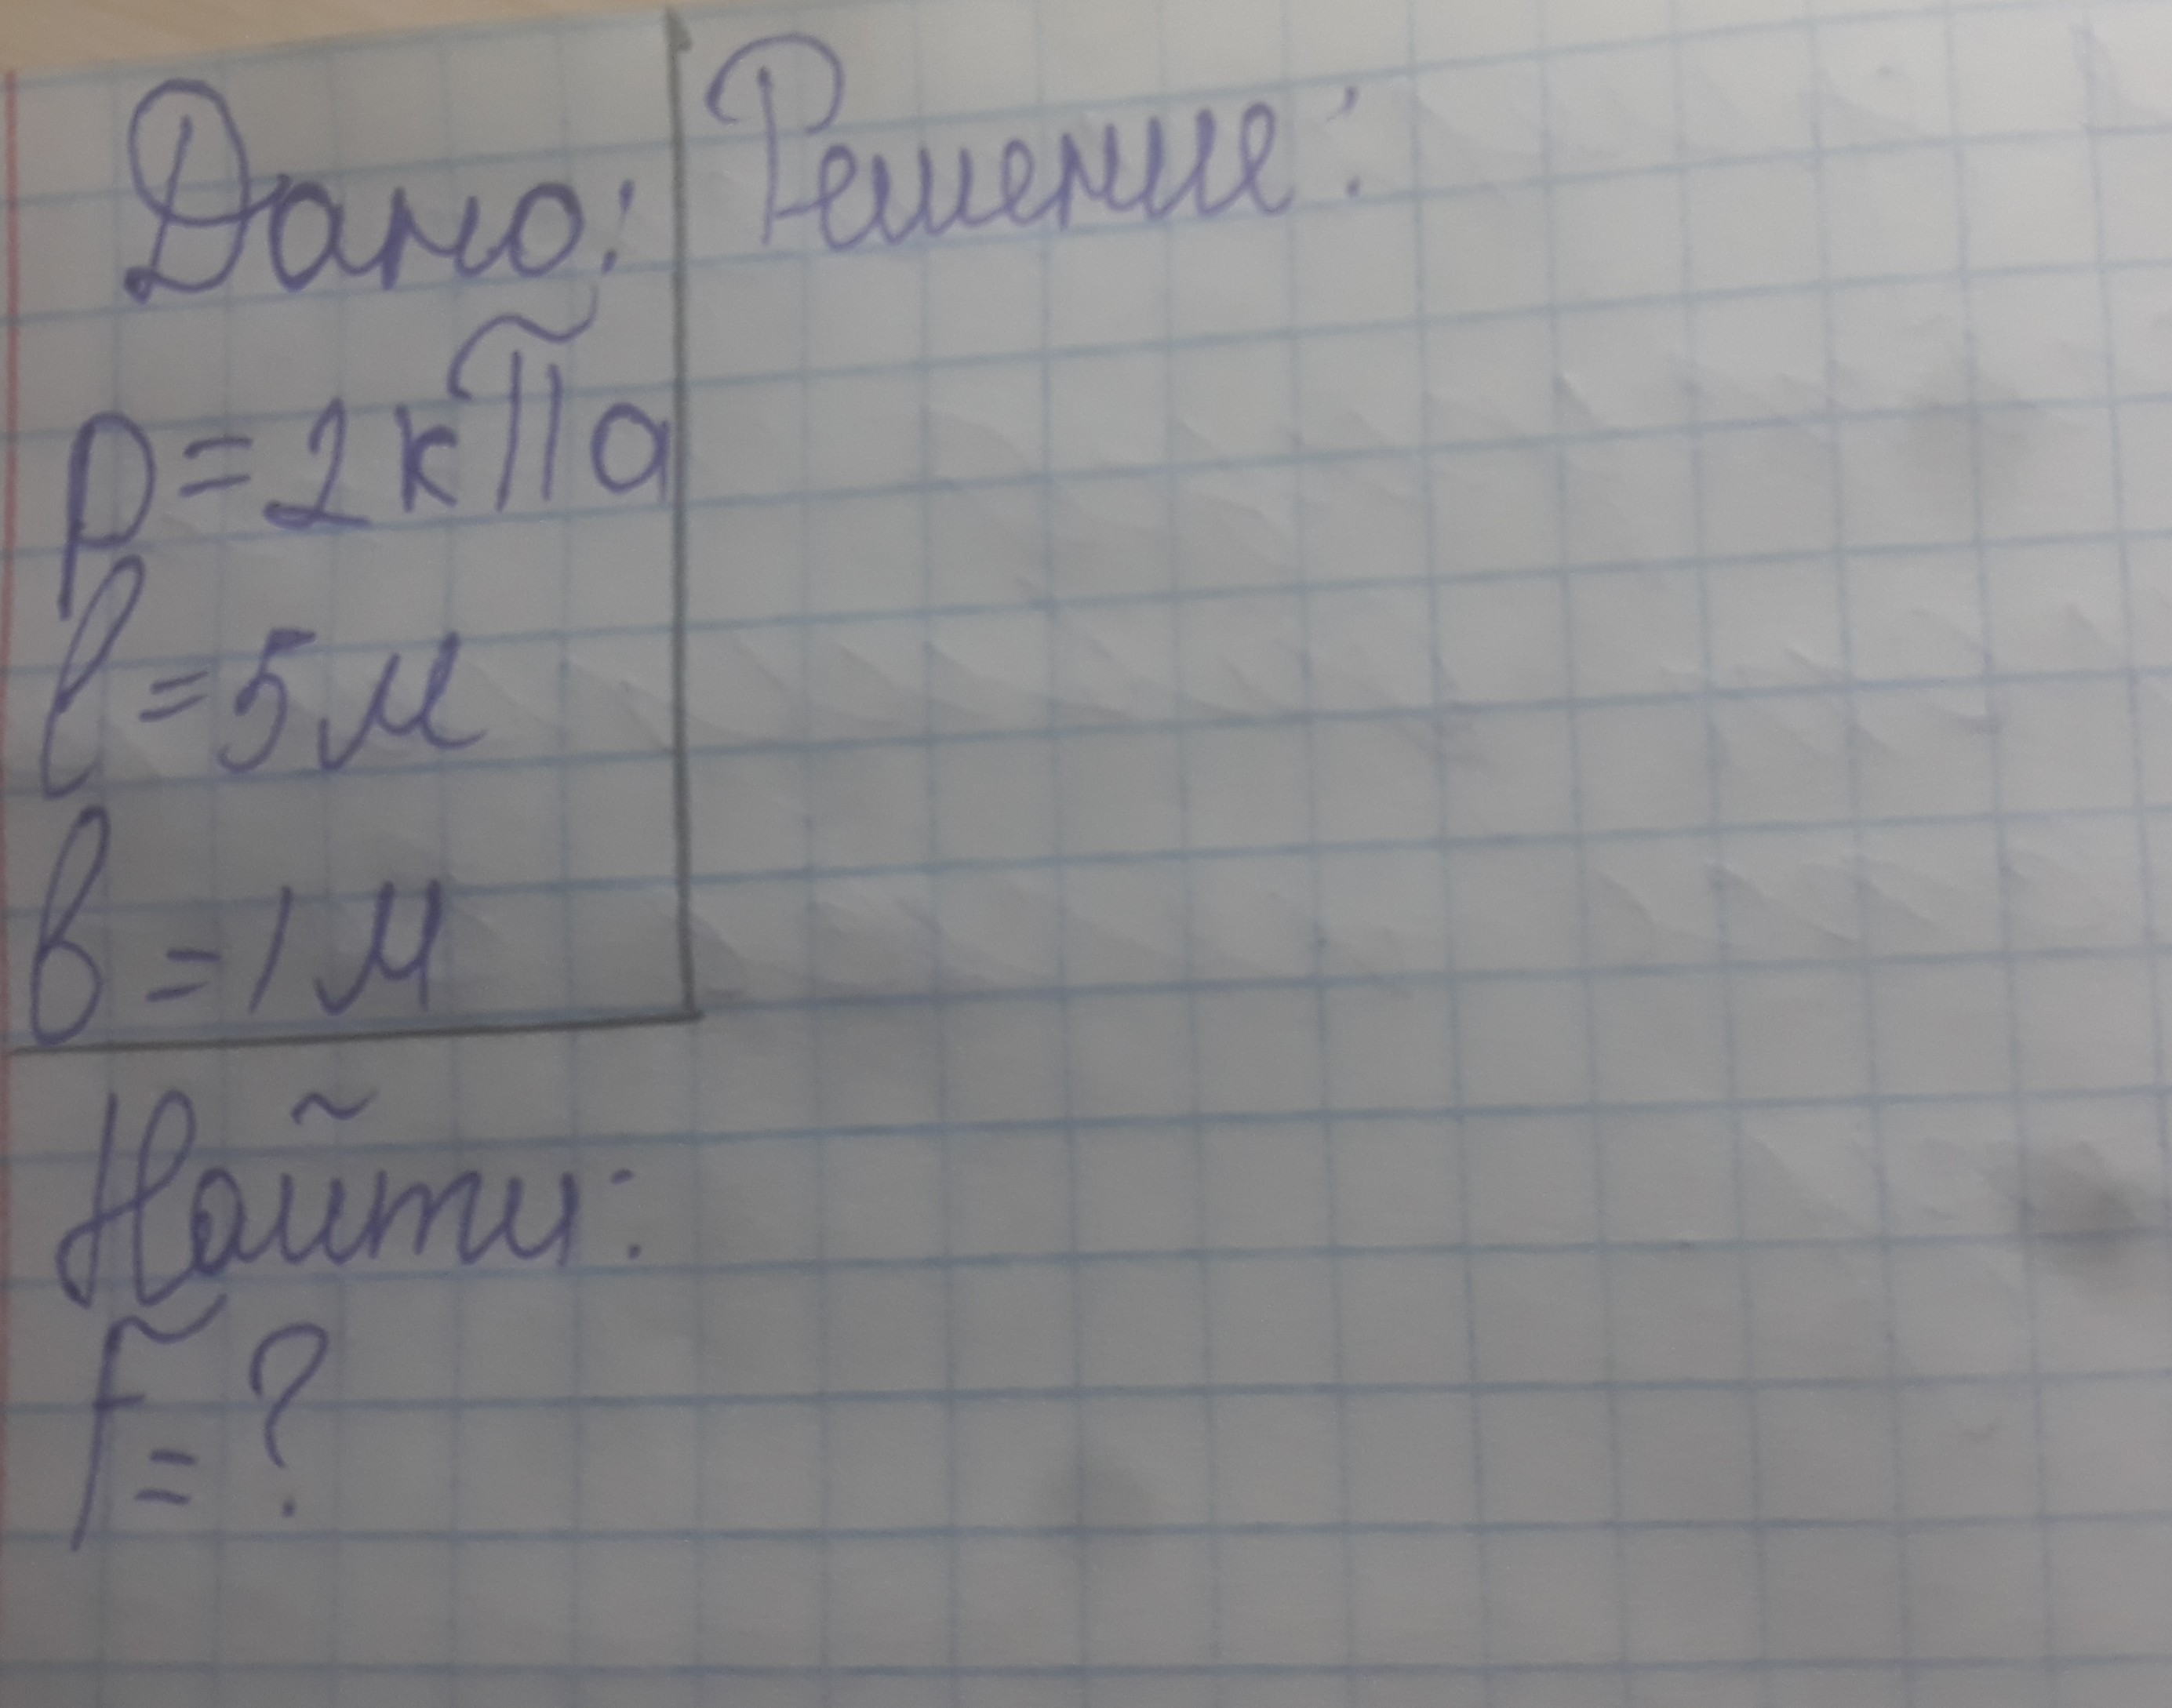 Дано:
Решение:
p = 2 кПа
l = 5 м
b = 1 м
Найти:
F = ?